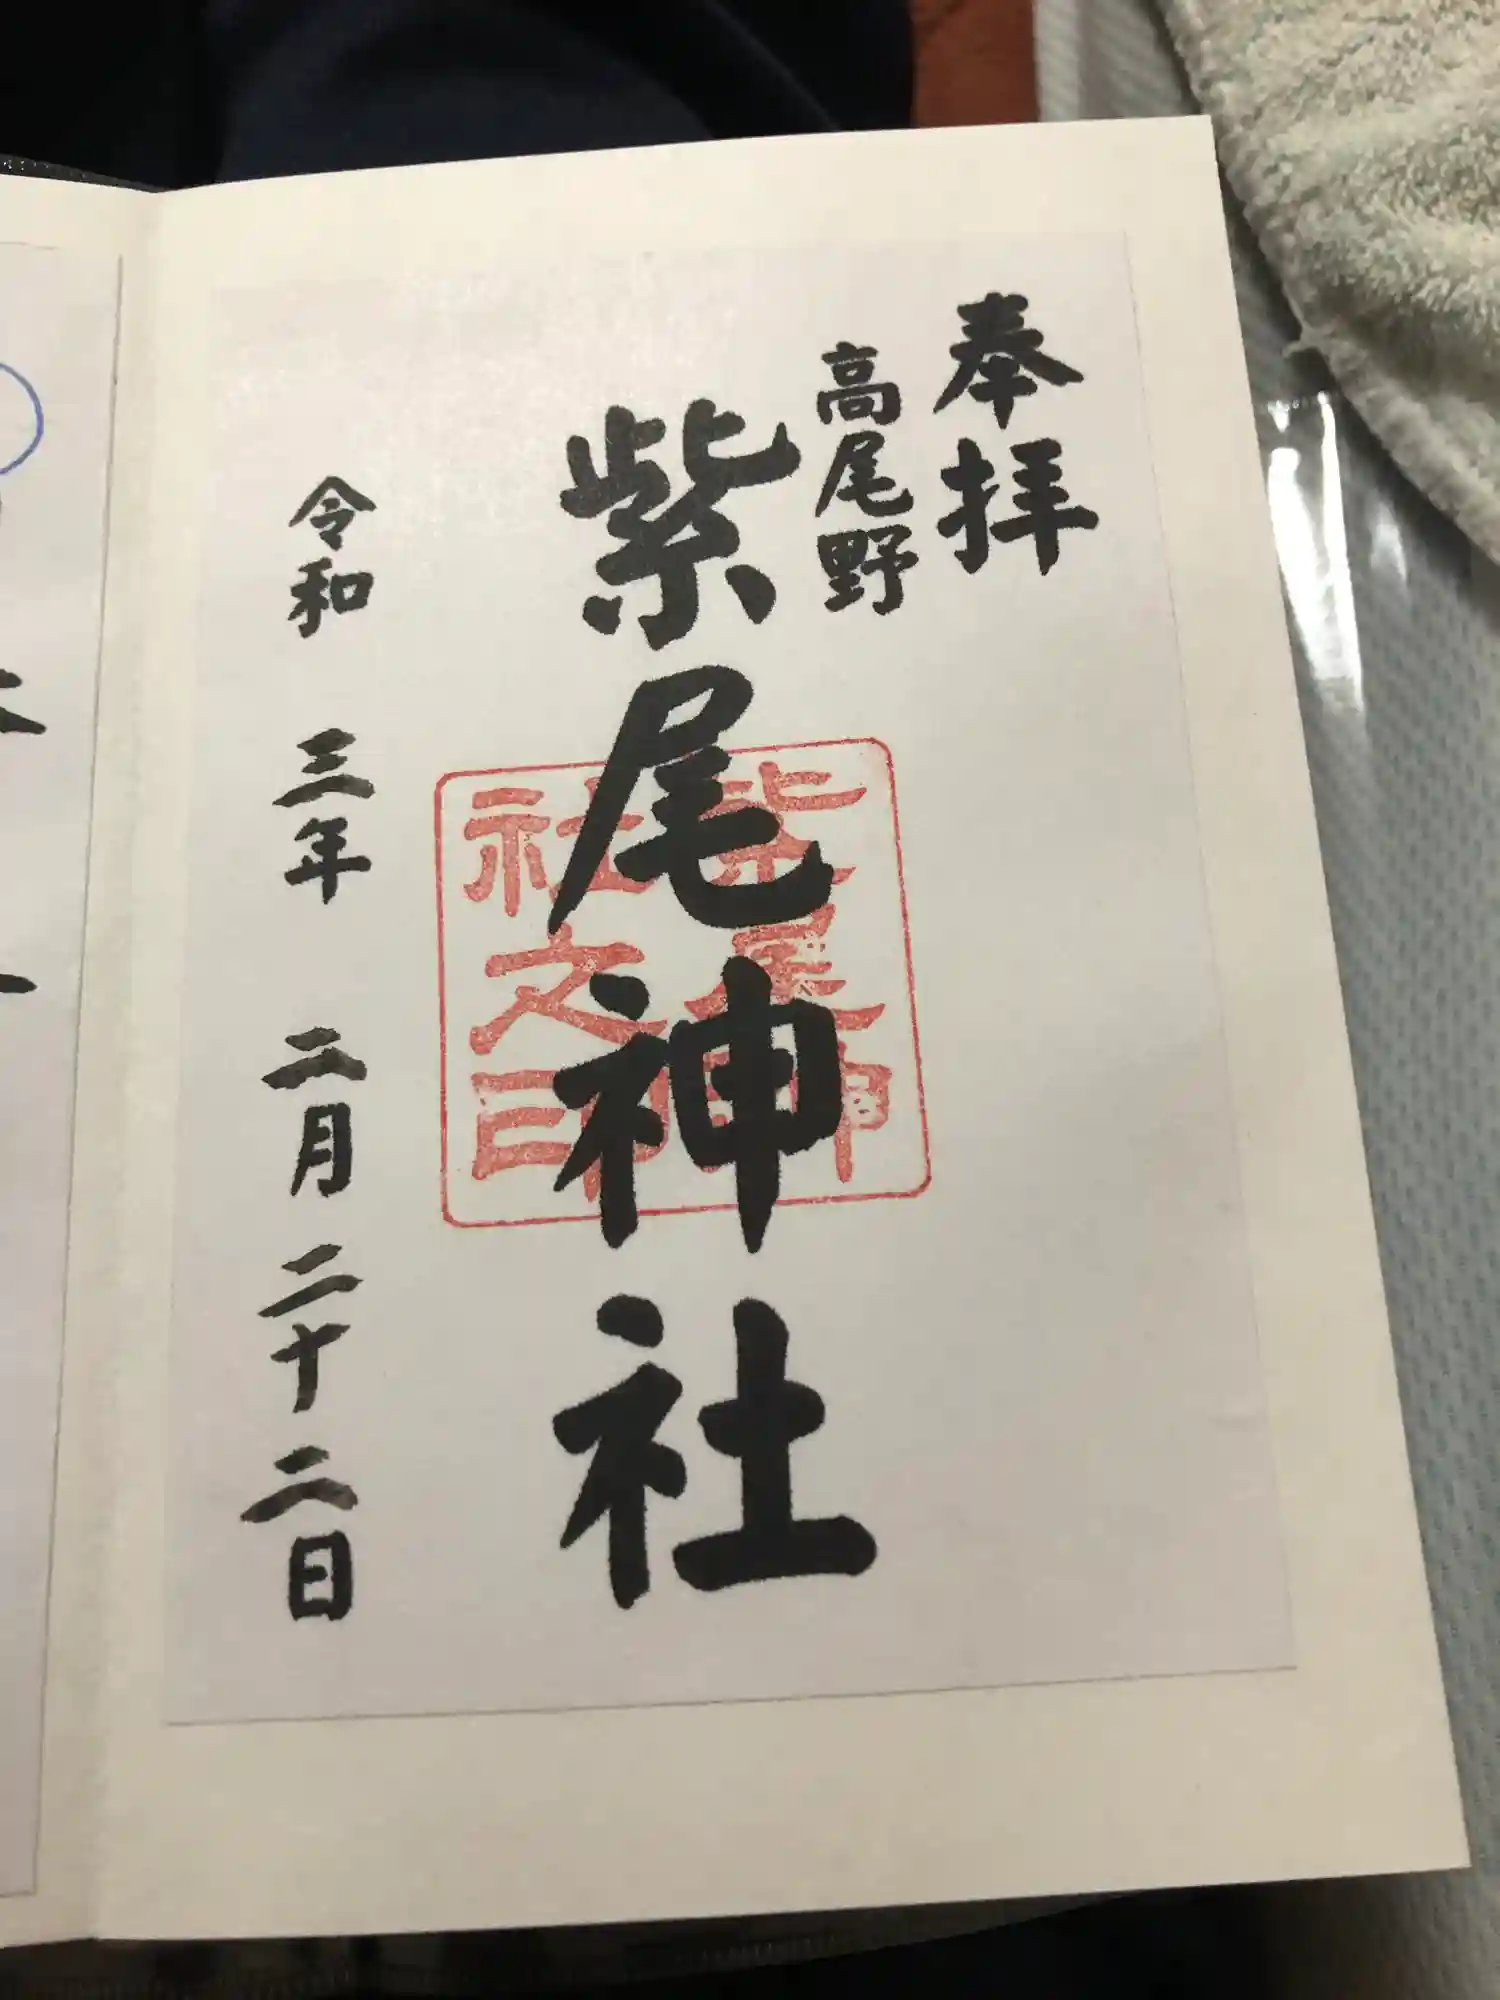 奉拝
高尾野
紫尾神社
紫尾神
社之印
令和三年二月二十二日